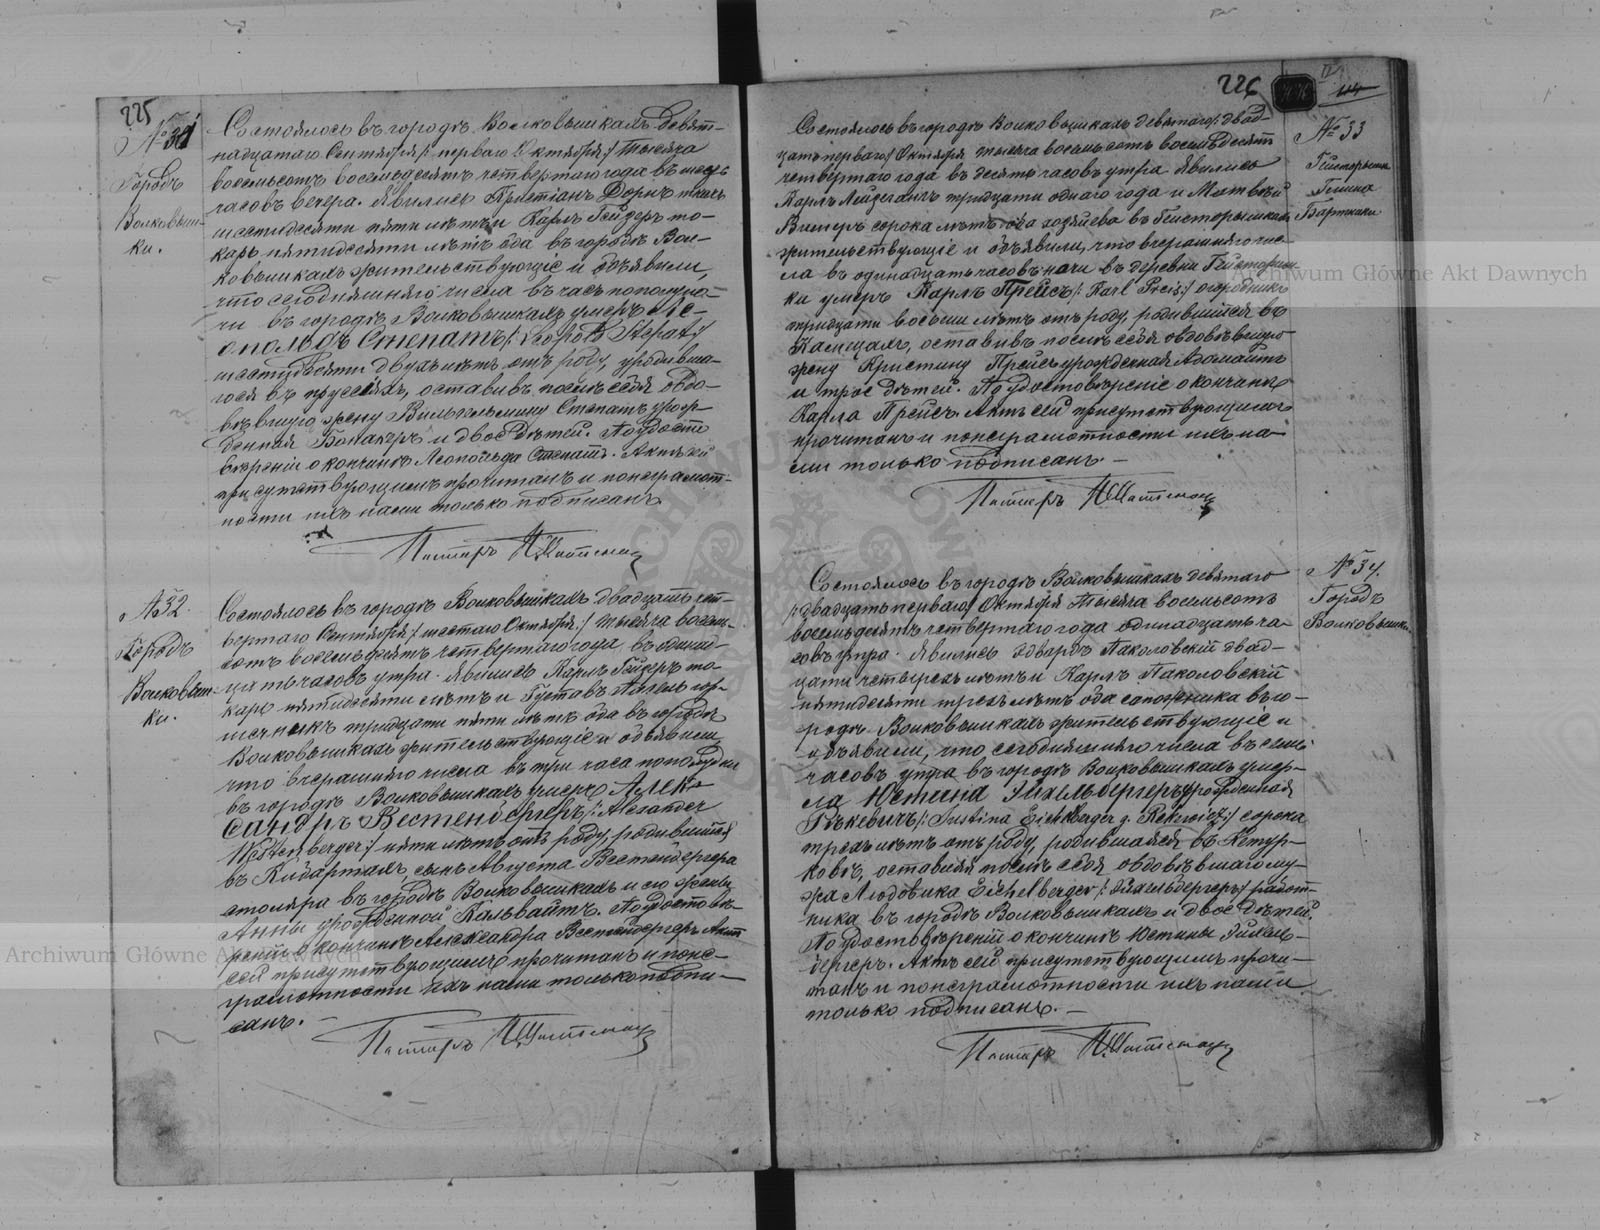 225
№ 31
Городъ
Волковыш-
ки.
Состоялось въ городѣ Волковышкахъ девят-
надцатаго Сентября /: перваго Октября :/ тысяча
восемьсотъ восемьдесятъ четвертаго года въ шесть
часовъ вечера. Явились Христіанъ Дорнъ ткачъ
шестидесяти пяти лѣтъ и Карлъ Гейдеръ то-
карь пятидесяти лѣтъ оба въ городѣ Вол-
ковышкахъ жительствующіе и объявили,
что сегодняшняго числа въ часъ пополуно-
чи въ городѣ Волковышкахъ умеръ Ле-
опольдъ Степатъ /: Leopold Stepat :/
шестидесяти двухъ лѣтъ отъ роду, уродивша-
гося въ Пруссіяхъ, оставивъ послѣ себя овдо-
вѣвшую жену Вильгельмину Степатъ урож-
денная и двое дѣтей. По удосто-
вѣреніи о кончинѣ Леопольда Степатъ. Актъ сей
присутствующимъ прочитанъ и понеграмот-
ности ихъ нами только подписанъ.
Пасторъ
№ 32.
Городъ
Волковыш-
ки.
Состоялось въ городѣ Волковышкахъ двадцать чет-
вертаго Сентября /: шестаго Октября :/ тысяча восемь-
сотъ восемьдесятъ четвертаго года въ одинад-
цать часовъ утра. Явились Карлъ Гейдеръ то-
карь пятидесяти лѣтъ и Густавъ гор-
шечникъ тридцати пяти лѣтъ оба въ городѣ
Волковышкахъ жительствующіе и объявили,
что вчерашняго числа въ три часа пополудни
въ городѣ Волковышкахъ умеръ Алек-
сандръ Вестенбергеръ /: Alexander
Westenberger :/ пяти лѣтъ отъ роду, родившійся
въ Кибартахъ, сынъ Августа Вестенбергера
столяра въ городѣ Волковышкахъ и его жены
Анны урожденной Кальвайтъ. По удостовѣ-
реніи о кончинѣ Александра Вестенбергеръ Актъ
сей присутствующимъ прочитанъ и поне-
грамотности ихъ нами только подпи-
санъ. —
Пасторъ
226
№ 33
Гейсторышки
Гмина
Бартники
Состоялось въ городѣ Волковышкахъ девятаго /: двад-
цать перваго / Октября тысяча восемьсотъ восемьдесятъ
четвертаго года въ десять часовъ утра. Явились
Карлъ тридцати одного года и Матвѣй
сорока лѣтъ оба хозяева въ Гейсторышкахъ
жительствующіе и объявили, что вчерашняго чис-
ла въ одинадцать часовъ ночи въ деревни Гейсторыш-
ки умеръ Карлъ Прейсъ /: Karl Preis :/ огородникъ
тридцати восьми лѣтъ отъ роду, родившійся въ
оставивъ послѣ себя овдовѣвшую
жену Кристину Прейсъ урожденная Адомайтъ
и трое дѣтей. По удостовѣреніе о кончинѣ
Карла Прейсъ. Актъ сей присутствующимъ
прочитанъ и понеграмотности ихъ на-
ми только подписанъ. —
Пасторъ
№ 34.
Городъ
Волковышки
Состоялось въ городѣ Волковышкахъ девятаго
/: двадцать перваго / Октября тысяча восемьсотъ
восемьдесятъ четвертаго года одинадцать ча-
совъ утра. Явились Эдвардъ Паколовскій двад-
цати четырехъ лѣтъ и Карлъ Паколовскій
пятидесяти трехъ лѣтъ оба сапожника въ го-
родѣ Волковышкахъ жительствующіе и
объявили, что сегодняшняго числа въ семь
часовъ утра въ городѣ Волковышкахъ умер-
ла Юстина Эйхельбергеръ урожденная
Рѣкевичъ /: Justina Eichelberger g. Rekewicz :/ сорока
трехъ лѣтъ отъ роду, родившаяся въ Кетур-
ковѣ, оставляя послѣ себя овдовѣвшаго му-
жа Людовика Eichelberger /: Эйхельбергеръ / работ-
ника въ городѣ Волковышкахъ и двое дѣтей.
По удостовѣреніи о кончинѣ Юстины Эйхель-
бергеръ. Актъ сей присутствующимъ прочи-
танъ и понеграмотности ихъ нами
только подписанъ. —
Пасторъ
Archiwum Główne Akt Dawnych
Archiwum Główne Akt Dawnych